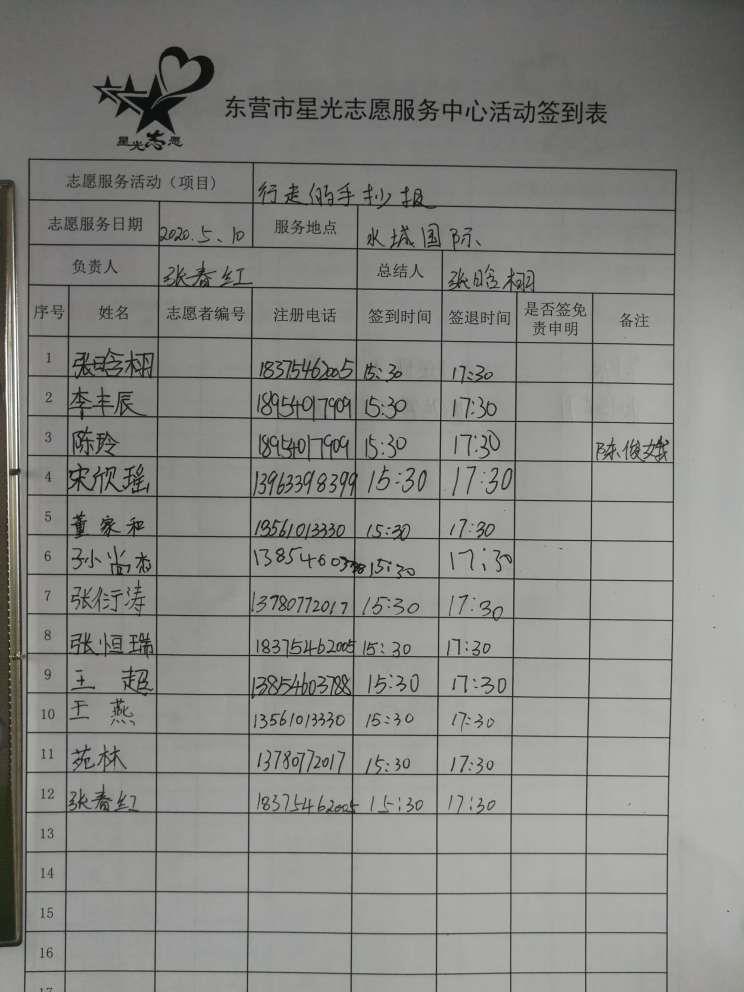 星光志愿
东营市星光志愿服务中心活动签到表
志愿服务活动（项目） 行走的手抄报
志愿服务日期 2020.5.10 服务地点 水城国际
负责人 张春红 总结人 张晗栩
序号 姓名 志愿者编号 注册电话 签到时间 签退时间 是否签免责申明 备注
1 张晗栩 18375462005 15:30 17:30
2 李丰辰 18954017909 15:30 17:30
3 陈玲 18954017909 15:30 17:30 陈俊娥
4 宋欣瑶 13963398399 15:30 17:30
5 董家和 13561013330 15:30 17:30
6 15:30 17:30
7 张衍涛 13780772017 15:30 17:30
8 张恒瑞 18375462005 15:30 17:30
9 王超 13854603788 15:30 17:30
10 王燕 13561013330 15:30 17:30
11 苑林 13780772017 15:30 17:30
12 张春红 18375462005 15:30 17:30
13
14
15
16
17